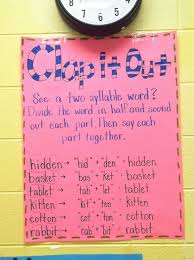 Clap It Out
See a two syllable word?
Divide the word in half and sound
out each part. Then say each
part together.
hidden → "hid" + "den" → hidden
basket → "bas" + "ket" → basket
tablet → "tab" + "let" → tablet
kitten → "kit" + "ten" → kitten
cotton → "cot" + "ton" → cotton
rabbit → "rab" + "bit" → rabbit